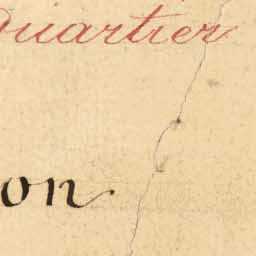 Quartier
on